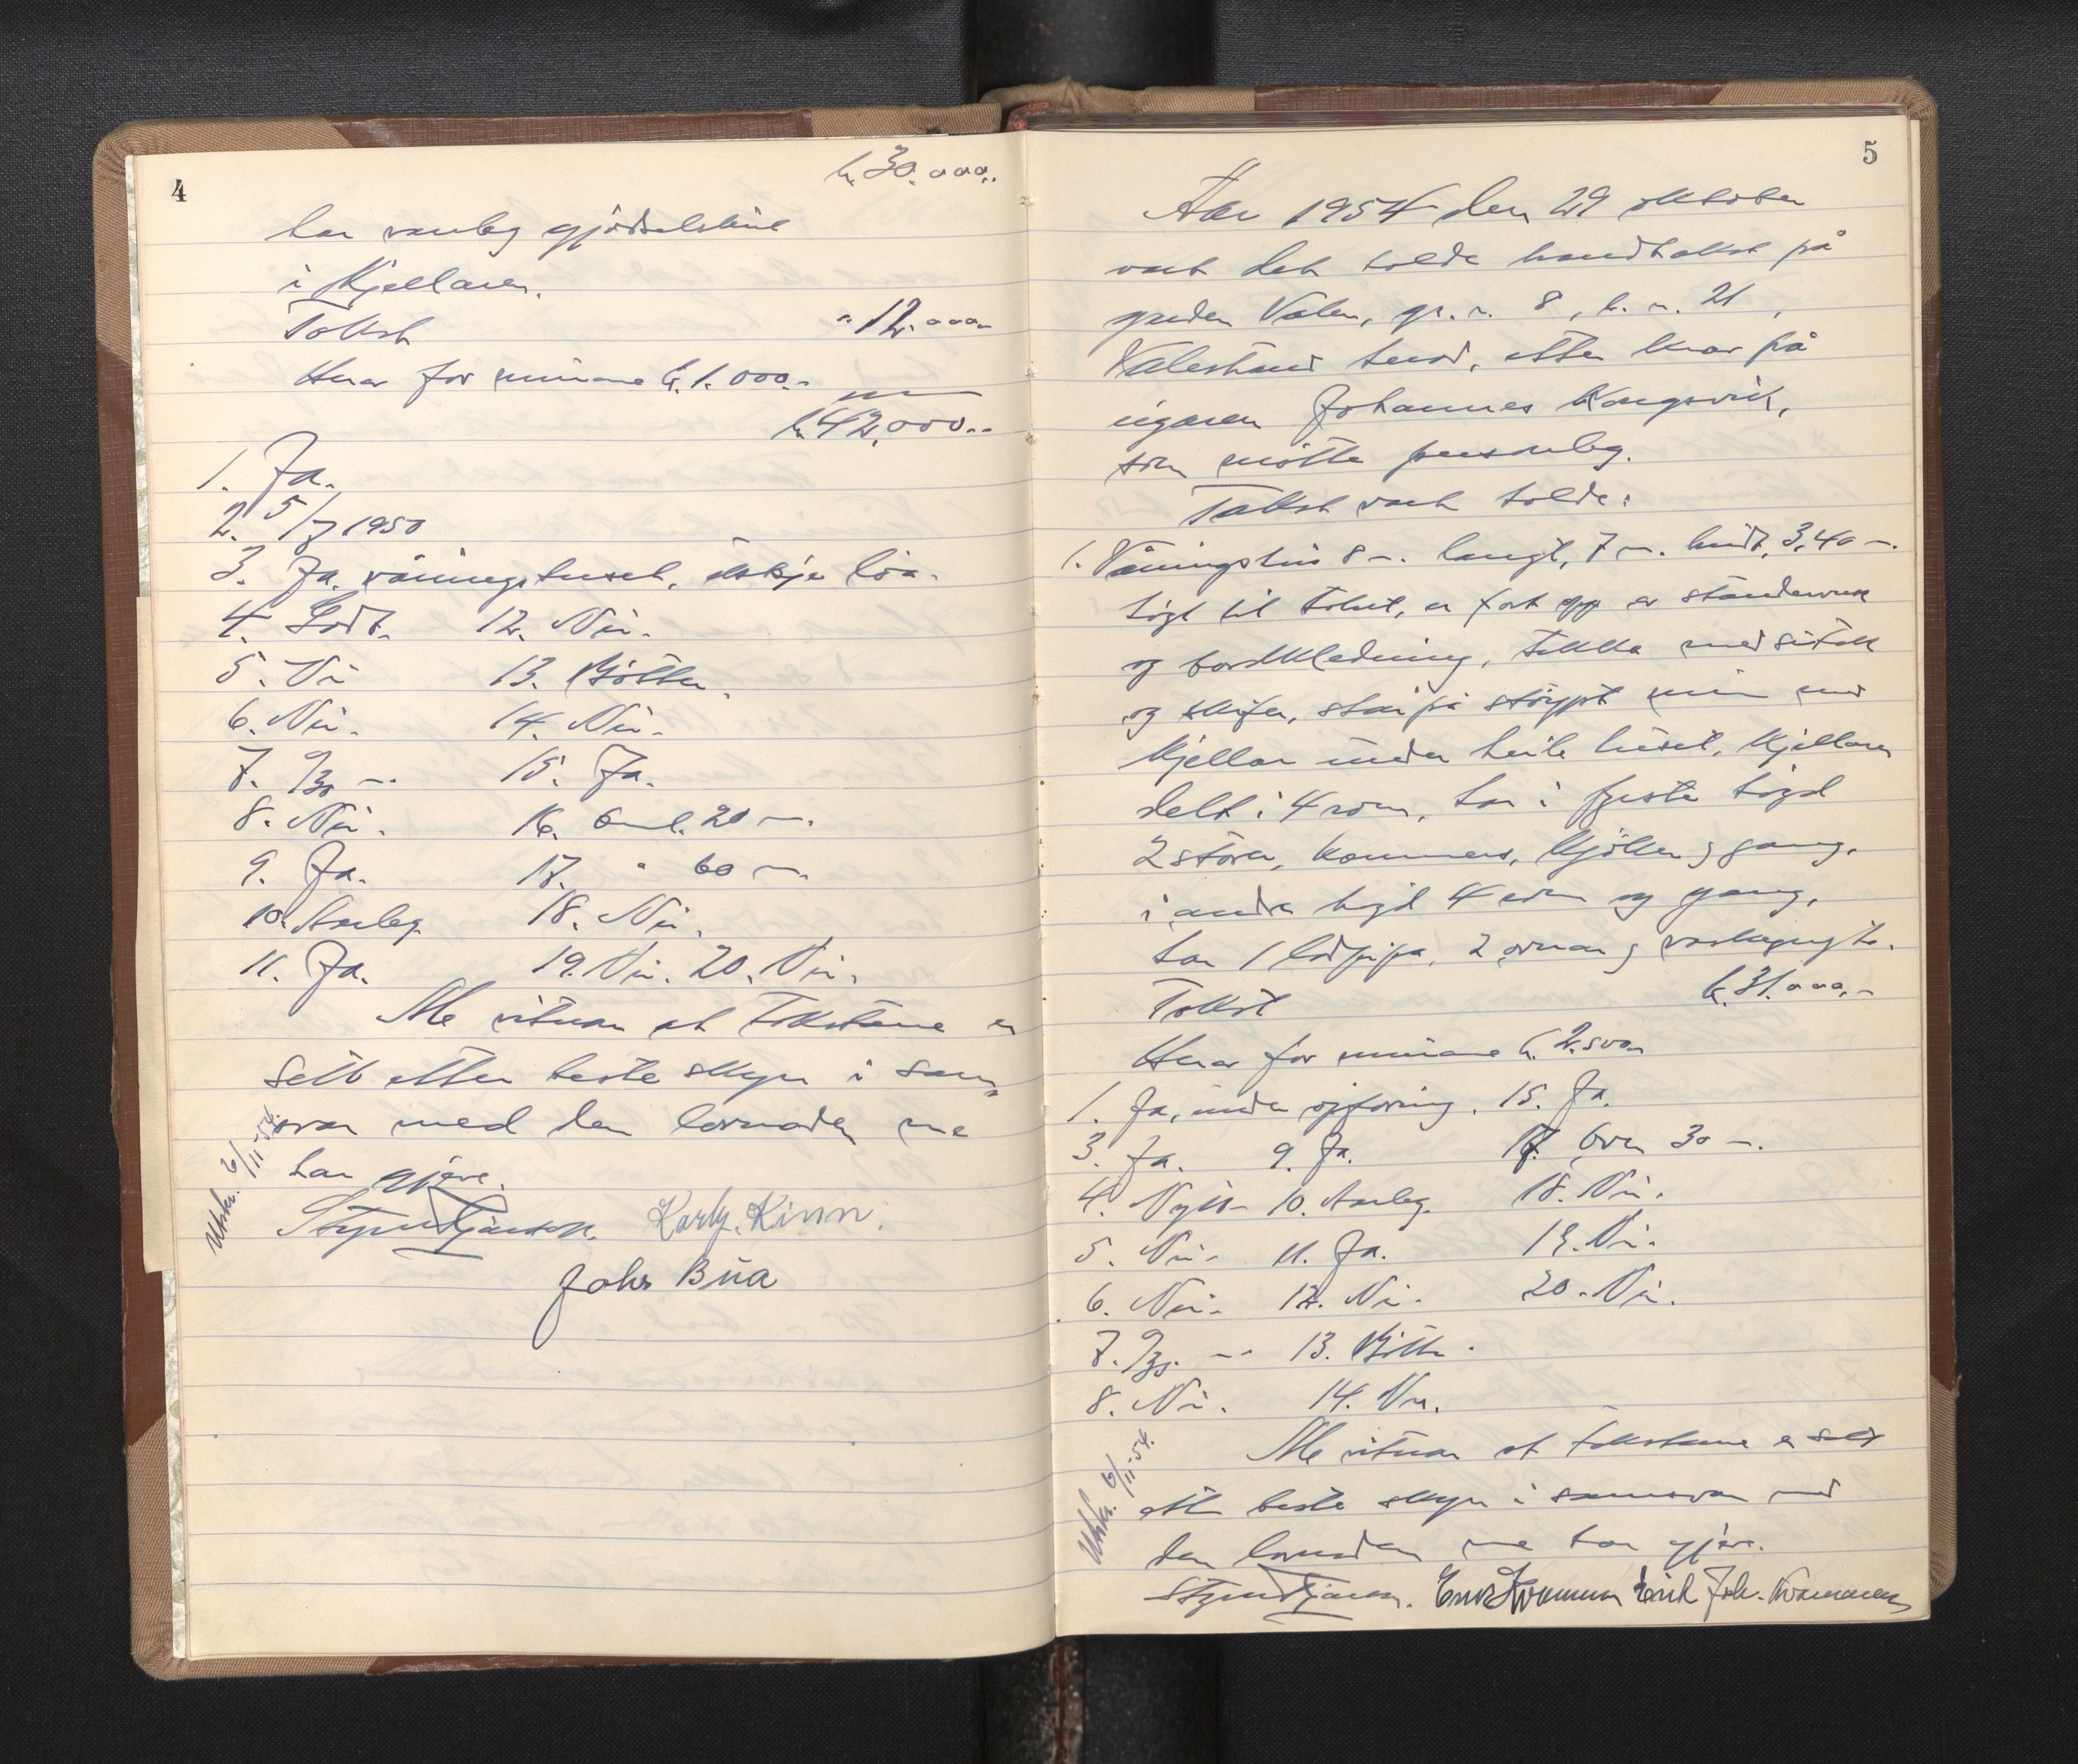 4
kr. 30.000.-
har vanleg gjödselskine
i Kjellaren.
Takst
" 12.000.-
Herav for murane kr. 1.000.-
kr. 42.000.-
1. Ja.
2. 5/7 1950
3. Ja. våningshuset, ikkje löa.
4. Godt. 12. Nei.
5. Nei 13. Bötter.
6. Nei. 14. Nei.
7. 9/30 m. 15. Ja.
8. Nei. 16. Oml. 20 m.
9. Ja. 17. " 60 m.
10. Avleg 18. Nei.
11. Ja. 19. Nei. 20. Nei.
Me vitnar at takstane er
sett etter beste skyn i sam-
svar med den lovnaden me
har gjeve.
Utskr. 6/11-54.
Karly. Kinn.
Johs Bua
5
År 1954 den 29 oktober
vart det halde brandtakst på
garden Valen, gr. n. 8, br. n. 21,
Valestrand herad, etter krav på
eigaren Johannes Kongsvik,
som mötte personleg.
Takst vart halde:
1. Våningshus 8 m. langt, 7 m. breidt, 3,40 m.
högt til taket, er fört opp av standerverk
og bordkledning, tekka med sutak
og skifer, står på stöypt mur med
kjellar under heile huset, kjellaren
delt i 4 rom, har i fyrste högd
2 stover, kammers, kjöken og gang,
i andre högd 4 rom og gang,
har 1 lodpipa, 2 omnar og vaskegryte.
Takst kr. 31.000.-
Herav for murane kr. 2.500.-
1. Ja, under oppföring. 15. Ja.
3. Ja. 9. Ja. 17. Over 30 m.
4. Nytt. 10. Avleg. 18. Nei.
5. Nei. 11. Ja. 19. Nei.
6. Nei. 12. Nei. 20. Nei.
7. 9/30. m. 13. Bötter.
8. Nei. 14. Nei.
Me vitnar at takstane er sett
etter beste skyn i samsvar med
den lovnaden me har gjeve.
Utskr. 6/11-54.
Erik Joh. Kvammen